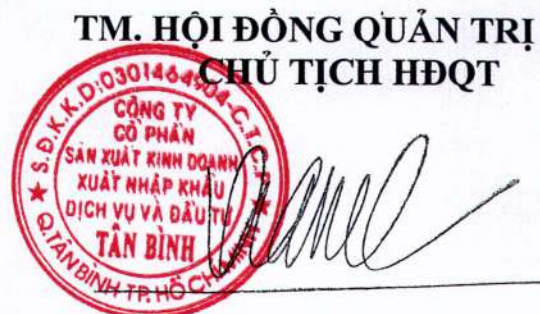 TM. HỘI ĐỒNG QUẢN TRỊ
CHỦ TỊCH HĐQT
S.Đ.K.K.D:0301464904-C.T.C.P
CÔNG TY
CỔ PHẦN
SẢN XUẤT KINH DOANH
XUẤT NHẬP KHẨU
DỊCH VỤ VÀ ĐẦU TƯ
TÂN BÌNH
Q.TÂN BÌNH TP. HỒ CHÍ MINH